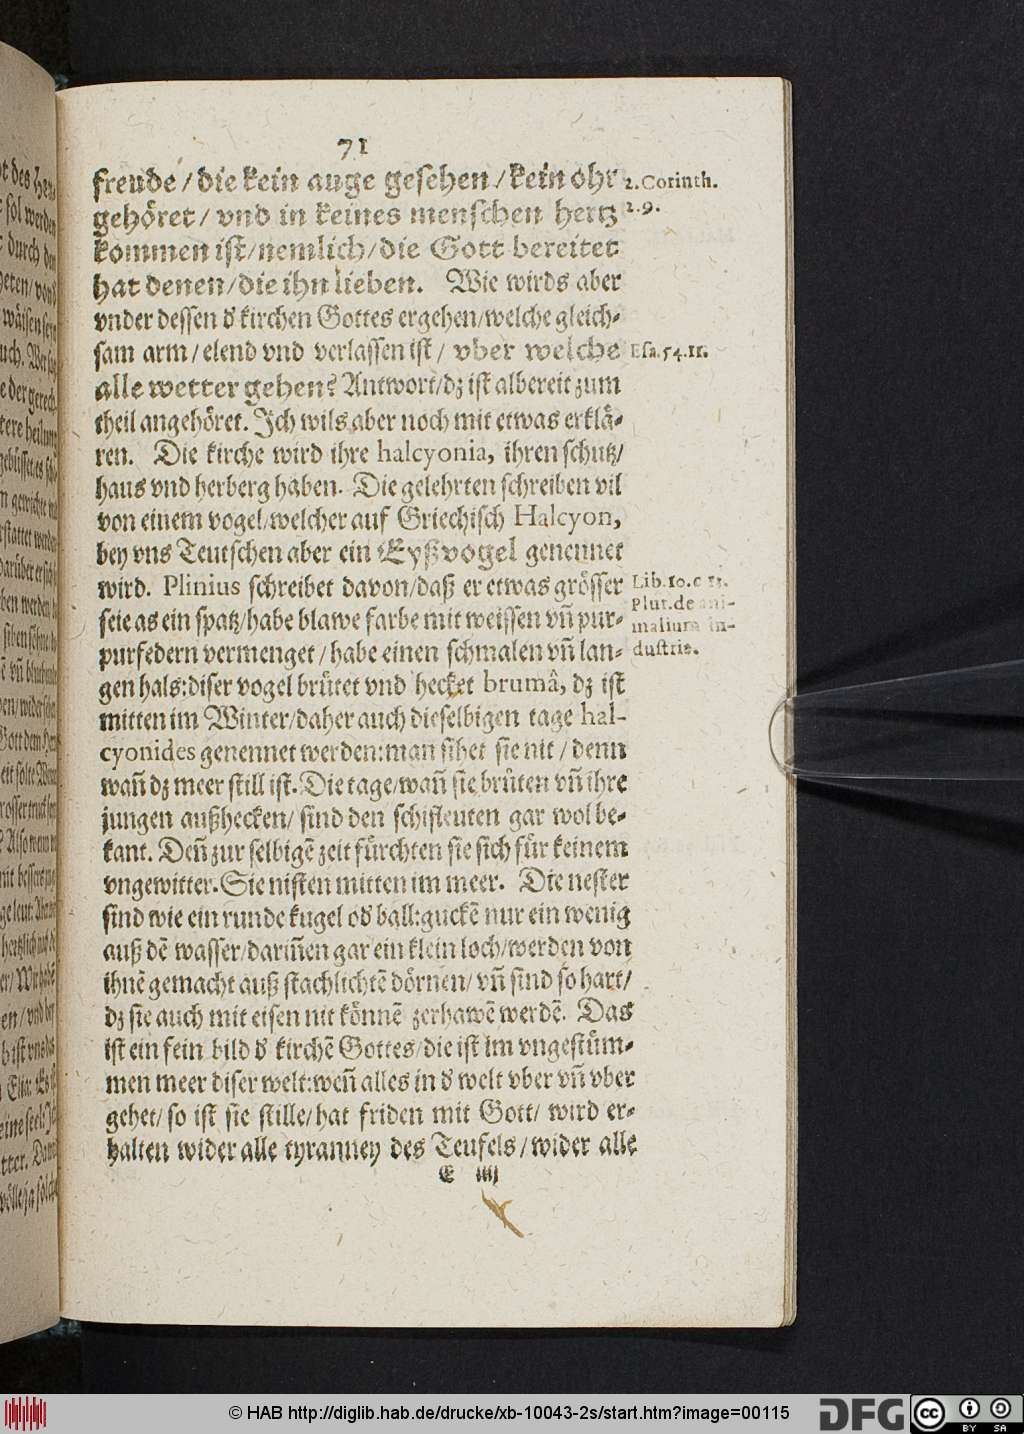 71
freude / die kein auge gesehen / kein ohr
gehöret / vnd in keines menschen hertz
kommen ist / nemlich / die Gott bereitet
hat denen / die ihn lieben. Wie wirds aber
vnder dessen d' kirchen Gottes ergehen / welche gleich-
sam arm / elend vnd verlassen ist / vber welche
alle wetter gehen? Antwort / dz ist albereit zum
theil angehöret. Ich wils aber noch mit etwas erklä-
ren. Die kirche wird ihre halcyonia, ihren schutz /
haus vnd herberg haben. Die gelehrten schreiben vil
von einem vogel / welcher auf Griechisch Halcyon,
bey vns Teutschen aber ein Eyßvogel genennet
wird. Plinius schreibet davon / daß er etwas grösser
seie as ein spatz / habe blawe farbe mit weissen vn̄ pur-
purfedern vermenget / habe einen schmalen vn̄ lan-
gen hals: diser vogel brütet vnd hecket brumâ, dz ist
mitten im Winter / daher auch dieselbigen tage hal-
cyonides genennet werden: man sihet sie nit / denn
wan̄ dz meer still ist. Die tage / wan̄ sie brüten vn̄ ihre
jungen außhecken / sind den schifleuten gar wol be-
kant. Den̄ zur selbigē zeit fürchten sie sich für keinem
vngewitter. Sie nisten mitten im meer. Die nester
sind wie ein runde kugel od' ball: guckē nur ein wenig
auß dē wasser / darin̄en gar ein klein loch / werden von
ihnē gemacht auß stachlichtē dörnen / vn̄ sind so hart /
dz sie auch mit eisen nit könnē zerhawē werdē. Das
ist ein fein bild d' kirchē Gottes / die ist im vngestüm-
men meer diser welt: wen̄ alles in d' welt vber vn̄ vber
gehet / so ist sie stille / hat friden mit Gott / wird er-
halten wider alle tyranney des Teufels / wider alle
E iiij
2. Corinth.
2. 9.
Esa. 54. 11.
Lib. 10. c 11.
Plut. de ani-
malium in-
dustria.
© HAB http://diglib.hab.de/drucke/xb-10043-2s/start.htm?image=00115
DFG
cc
BY SA